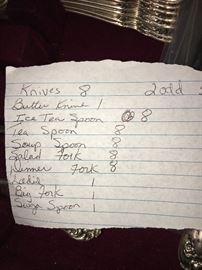 Knives 8 2 add
Butter Knive 1
Ice Tea Spoon 8
Tea Spoon 8
Soup Spoon 8
Salad Fork 8
Dinner Fork 8
Ladle 1
Big Fork 1
Suga Spoon 1